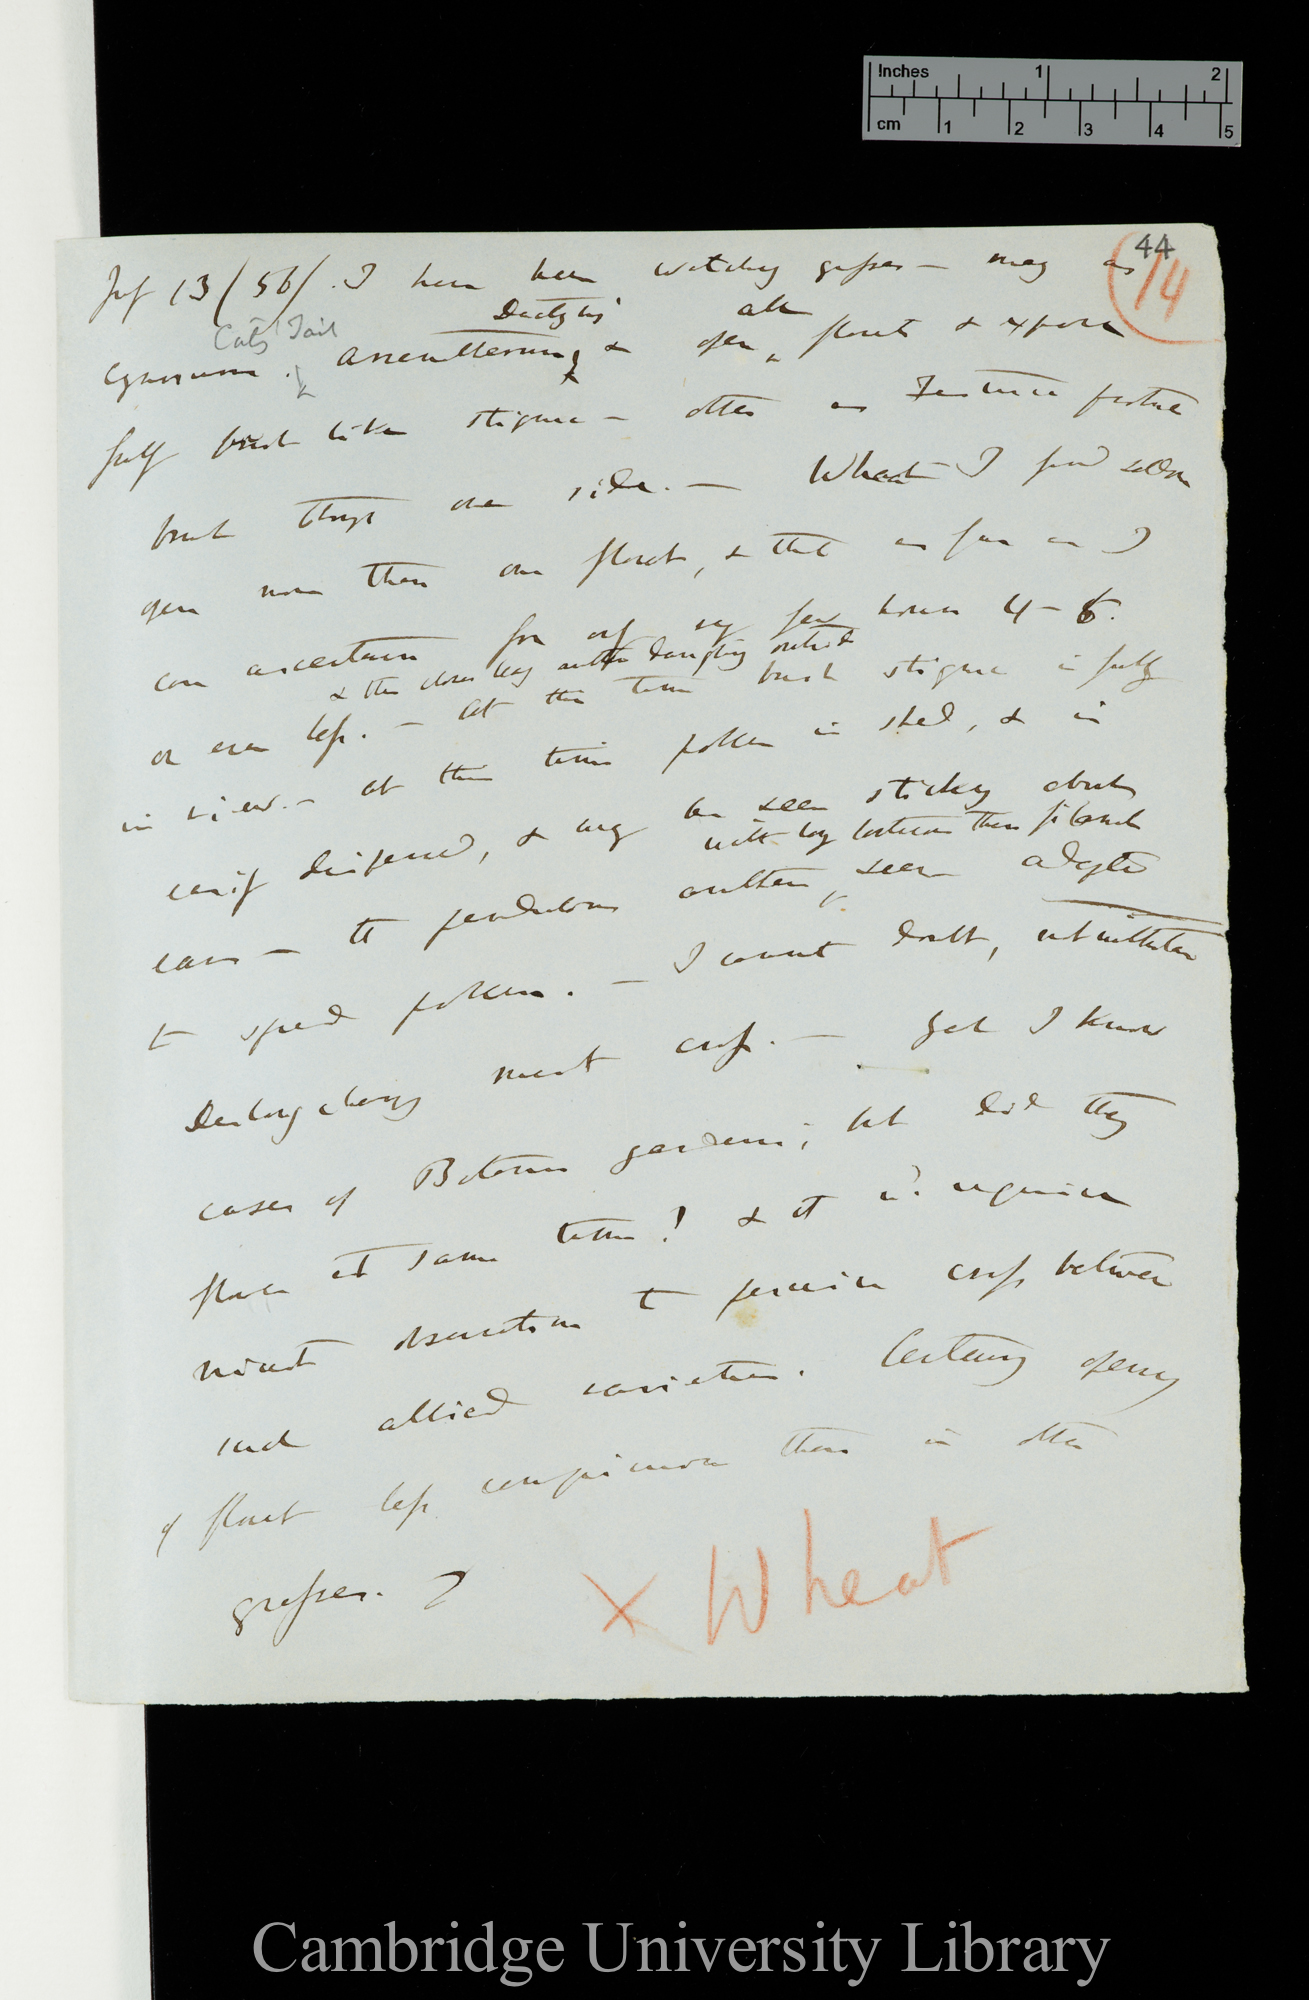 Inches 1 2
cm 1 2 3 4 5
44
14
July 13/56/. I have been watching grasses — many as
Cats Tail Dactylis all
Cynosurus . & open florets & expose
fully brush like stigma — others as Festuca protrude
brush through one side. — Wheat I find seldom
open more than one floret, & that as far as I
can ascertain for only very few hours 4 – 6.
& then closes leaving anthers dangling outside
or even less. — At this time brush stigma is fully
in view. — At this time pollen is shed, & is
easily dispersed, & may be seen sticking about
with long between them filaments
ears — the pendulous anthers, seem adapted
to spread pollen. — I cannot doubt, notwithstanding
Deslongchamps must cross. — Yet I know
cases of Botanic gardens; but did they
flower at same time? & it wd. require
minute observation to perceive cross between
such allied varieties. Certainly opening
of floret less conspicuous than in other
grasses.
X Wheat
Cambridge University Library